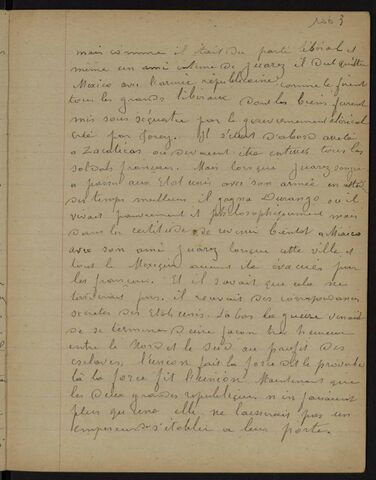 1003
mais comme il était du parti libéral et
même un ami intime de Juarez il dut quitter
Mexico avec l'armée républicaine comme le firent
tous les grands libéraux dont les biens furent
mis sous séquestre par le gouvernement clérical
créé par Forey. Il s'était d'abord
a Zacatecas ou devaient être tous les
soldats français. Mais lorsque Juarez songea
a passer aux Etats unis avec son armée en
des temps meilleurs il gagna Durango ou il
vivait pauvrement et philosophiquement mais
dans la certitude de revenir bientot a Mexico
avec son ami Juarez lorsque cette ville et
tout le Mexique auront été évacués par
les français. Et il savait que cela ne
tarderait pas. il recevait des correspondances
secretes des Etats unis. Là bas la guerre venait
de se terminer d'une façon tres heureuse
entre le Nord et le Sud au profit des
esclaves. l'union fait la force dit le proverbe
là la force fit l'union. Maintenant que
les deux grandes republiques n'en faisaient
plus qu'une elle ne laisserait pas un
empereur s'établir a leur porte.